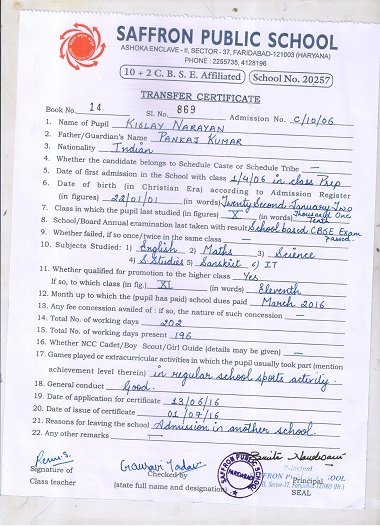 SAFFRON PUBLIC SCHOOL
ASHOKA ENCLAVE - II, SECTOR - 37, FARIDABAD-121003 (HARYANA)
PHONE : 2255735, 4128196
10 + 2 C. B. S. E. Affiliated School No. 20257
TRANSFER CERTIFICATE
Book No. 14 Sl. No. 869 Admission No. C/10/06
1. Name of Pupil Kislay Narayan
2. Father/Guardian's Name Pankaj Kumar
3. Nationality Indian
4. Whether the candidate belongs to Schedule Caste or Schedule Tribe —
5. Date of first admission in the School with class 1/4/06 in class Prep
6. Date of birth (in Christian Era) according to Admission Register
(in figures) 22/01/01 (in words) Twenty Second January Two Thousand One
7. Class in which the pupil last studied (in figures) X (in words) Tenth
8. School/Board Annual examination last taken with result School based CBSE Exam passed.
9. Whether failed, if so once/twice in the same class —
10. Subjects Studied : 1) English 2) Maths 3) Science
4) S.Studies 5) Sanskrit 6) IT
11. Whether qualified for promotion to the higher class Yes
If so, to which class (in fig.) XI (in words) Eleventh
12. Month up to which the (pupil has paid) school dues paid March 2016
13. Any fee concession availed of : if so, the nature of such concession —
14. Total No. of working days 202
15. Total No. of working days present 196
16. Whether NCC Cadet/Boy Scout/Girl Guide (details may be given) —
17. Games played or extracurricular activities in which the pupil usually took part (mention
achievement level therein) in regular school sports activity.
18. General conduct Good.
19. Date of application for certificate 13/06/16
20. Date of issue of certificate 01/07/16
21. Reasons for leaving the school Admission in another school.
22. Any other remarks —
Signature of
Class teacher
Gaurav Yadav
Checked by
(state full name and designation)
SAFFRON PUBLIC SCHOOL
FARIDABAD
Principal
Principal
SEAL